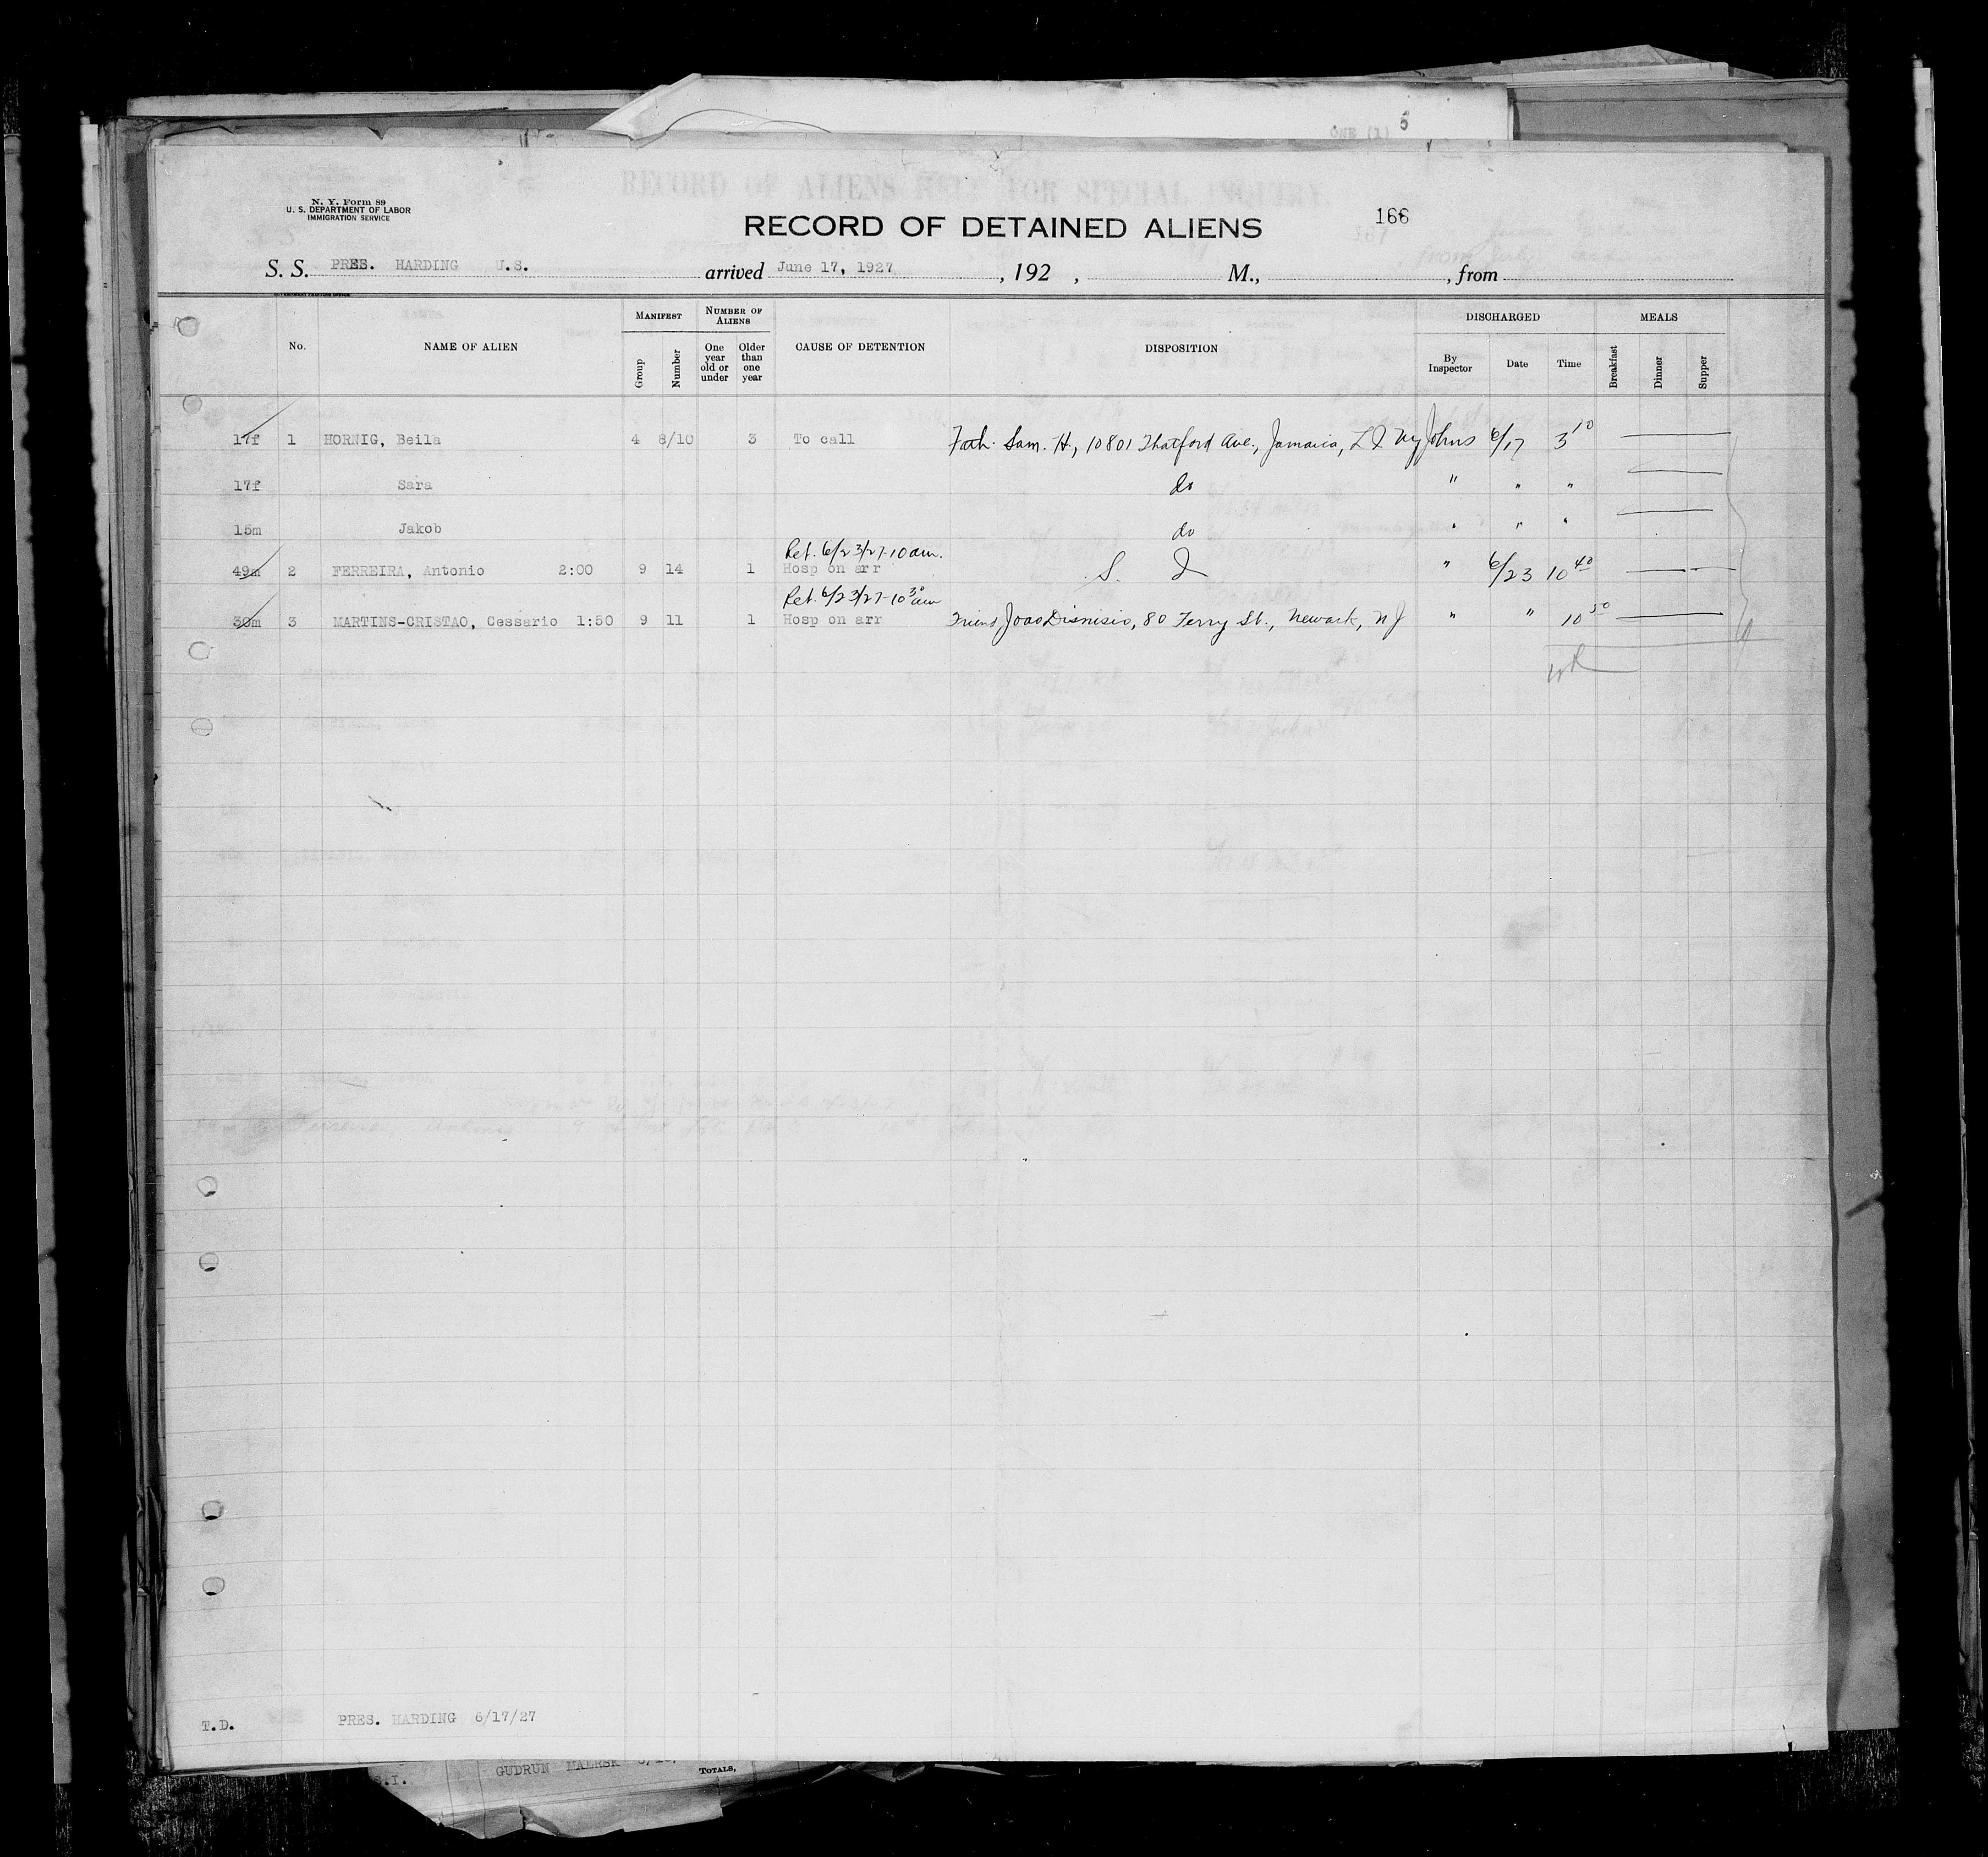 ONE (1) 5
RECORD OF ALIENS HELD FOR SPECIAL INQUIRY
N. Y. Form 89
U. S. DEPARTMENT OF LABOR
IMMIGRATION SERVICE
RECORD OF DETAINED ALIENS
166
S. S. PRES. HARDING U.S. arrived June 17, 1927, 192 , M., , from
No. NAME OF ALIEN MANIFEST Group Number NUMBER OF ALIENS One year old or under Older than one year CAUSE OF DETENTION DISPOSITION DISCHARGED By Inspector Date Time MEALS Breakfast Dinner Supper
17f 1 HORNIG, Beila 4 8/10 3 To call Fath. Sam. H, 10801 Thatford Ave., Jamaica, L I NY Johns 6/17 3 10
17f Sara do " " "
15m Jakob do " " "
Ret. 6/23/27-10am.
49m 2 FERREIRA, Antonio 2:00 9 14 1 Hosp on arr S. I " 6/23 10 40
Ret. 6/23/27-10 30 am
39m 3 MARTINS-CRISTAO, Cessario 1:50 9 11 1 Hosp on arr Friend, Joao Disnisio, 80 Ferry St., Newark, N J " " 10 50
T.D. PRES. HARDING 6/17/27
S.I. GUDRUN MAERSK
TOTALS,